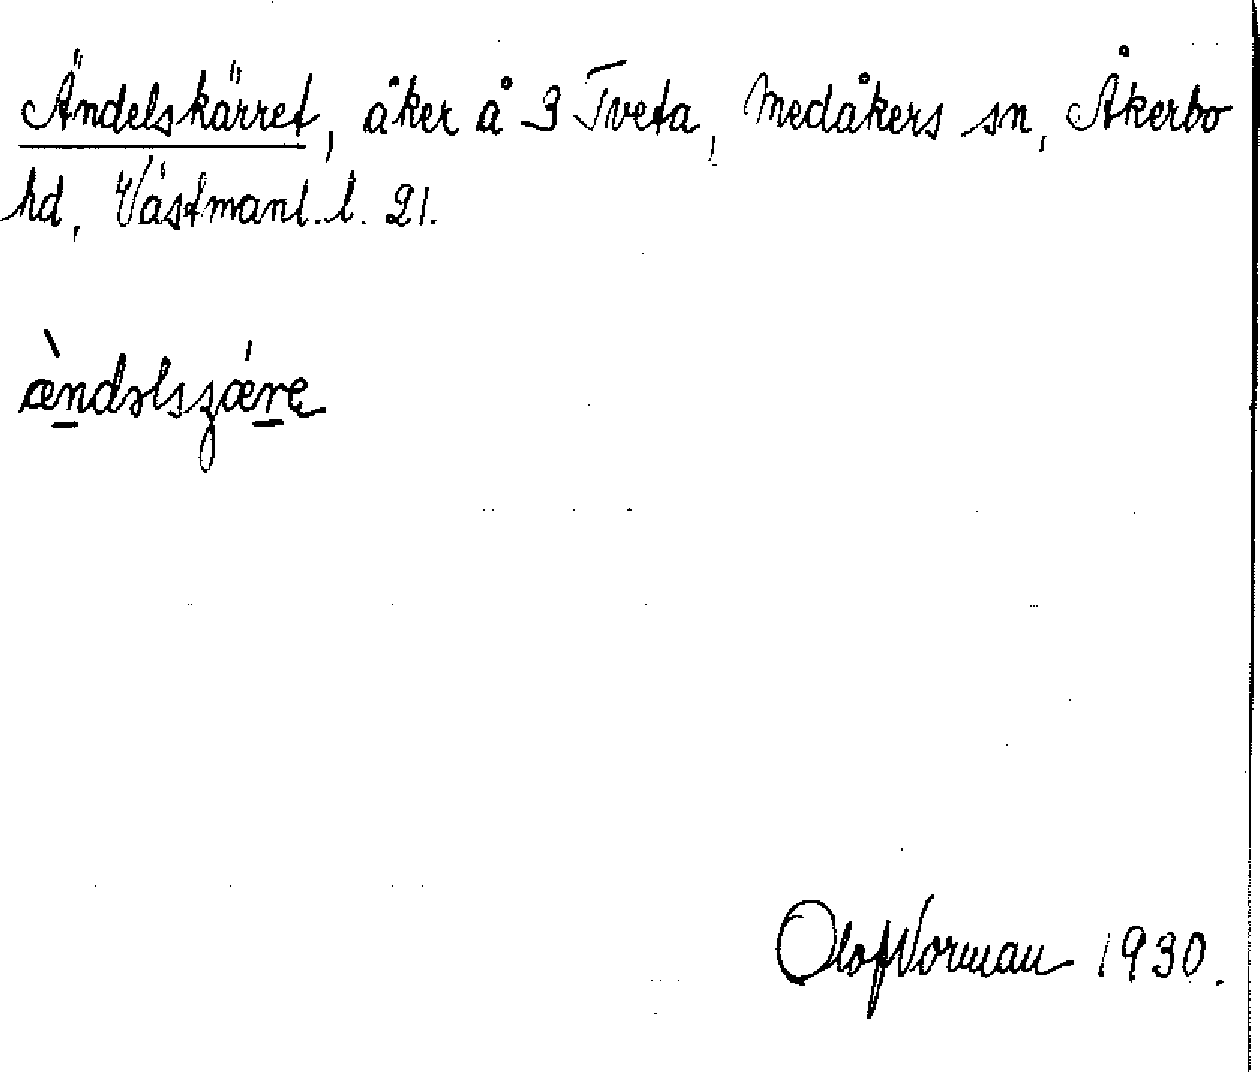 Ändelskärret, åker å 3 Tveta, Medåkers sn, Åkerbo
hd, Västmanl. l. 21.
æ̀ndəlsɀǽrе
Olof Norman 1930.